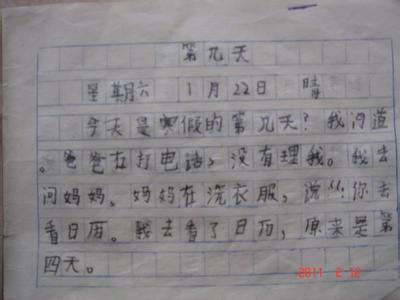 第几天
星期六 1月22日 晴
今天是寒假的第几天?我问道
。爸爸在打电话,没有理我。我去
问妈妈。妈妈在洗衣服,说“:你去
看日历。我去看了日历,原来是第
四天。
2011 2 12